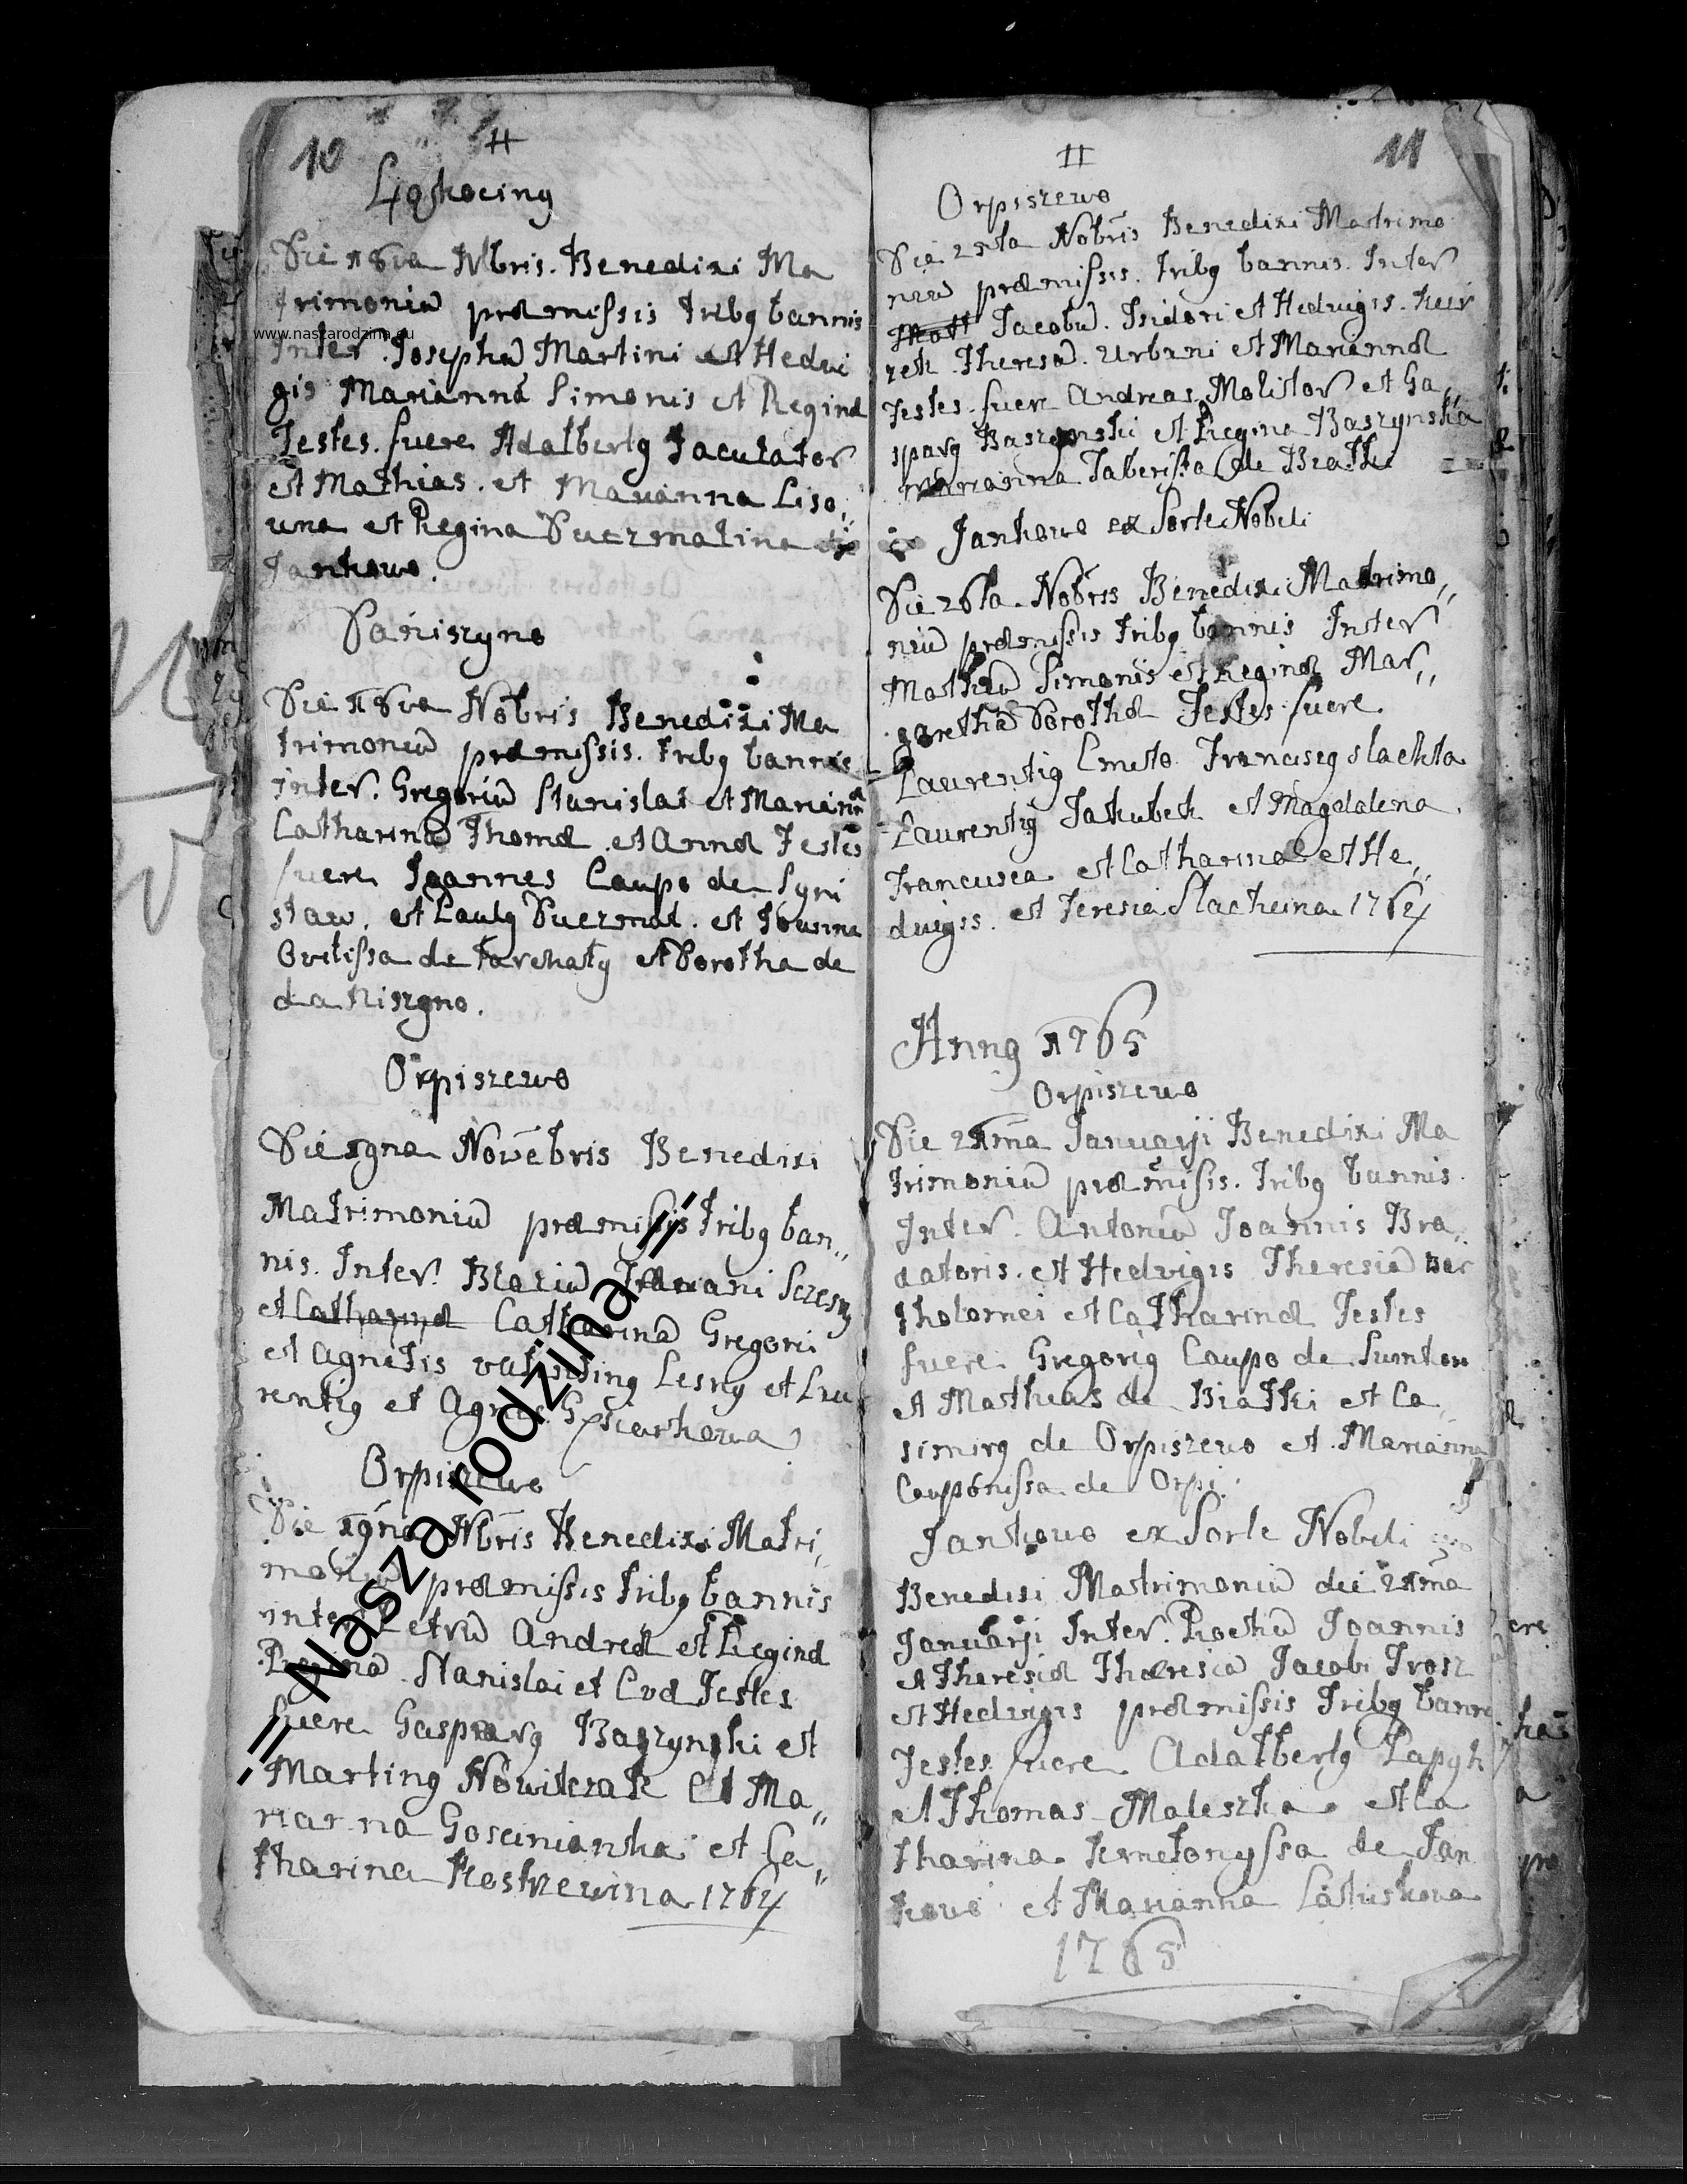 10
Die 18va Nbris. Benedixi Ma
trimoniũ præmissis tribq bannis
www.naszarodzina.eu
Inter. Josephũ Martini et Hedvi
gis Mariannã Simonis et Reginæ
Testes. fuere Adalbertq Jaculator
et Mathias. et Marianna Liso,,
wna et Regina
Jankowo.
Daniszyno
Die 18va Nobris Benedixi Ma
trimoniũ præmissis. tribq bannis
Inter. Gregoriũ Stanislai et Mariannæ
Catharinã Thomæ et Annæ Testes
fuere Joannes Caupo de Syni
staw. et Paulq et
de et Dorotha de
daniszyno.
Orpiszewo
Die 19na Novẽbris Benedixi
Matrimoniũ præmissis tribq ban,,
nis. Inter. Blaziũ
et Catharinæ Catharinã Gregorii
et Agnetis Lesny et Lau
rentiq et Agnes
Orpiszewo
Die 19na Nbris Benedixi Matri,,
moniũ præmissis tribq bannis
inter Petrũ Andreæ et Reginæ
Reginã. Stanislai et Evæ Testes
fuere Gasparq Baszynski et
Martinq Nowiczak et Ma,,
rianna Goscinianka et Ca,,
tharina 1764
Nasza rodzina
11
II
Orpiszewo
Die 25ta Nobris Benedixi Matrimo
niũ præmissis. tribq bannis. Inter
Jacobũ. Isidori et Hedvigis.
Theresã. Urbani et Mariannæ
Testes. fuere Andreas Molitor et Ga,,
sparq Baszynski et Regina Baszynska
Marianna de
Jankowo ex Sorte Nobili
Die 26ta. Nobris Benedixi Matrimo,,
niũ præmissis tribq bannis Inter
Mathiũ Simonis et Reginæ Mar,,
garethã Dorothæ Testes fuere
Laurentiq Cmeto Franciscq slachta
Laurentiq Jakubek et Magdalena
Francisca et Catharina et He,,
dvigis. et Teresia Slacheina 1764
Annq 1765
Orpiszewo
Die 21ma Januarji Benedixi Ma
trimoniũ præmissis. tribq bannis
Inter. Antoniũ Joannis Bra,,
datoris. et Hedvigis Theresiã Bar
tholomei et Catharinæ Testes
fuere Gregoriq Caupo de
et Mathias de et Ca,,
simirq de Orpiszewo et Marianna
Cauponissa de Orpi.
Jankowo ex Sorte Nobili
Benedixi Matrimoniũ dei 21ma
Januarji Inter. Joannis
et Theresiæ Theresiã Jacobi
et Hedvigis præmissis tribq bann
Testes fuere Adalbertq
et Thomas Maleszka et Ca
tharina de Jan
kowo et Marianna
1765